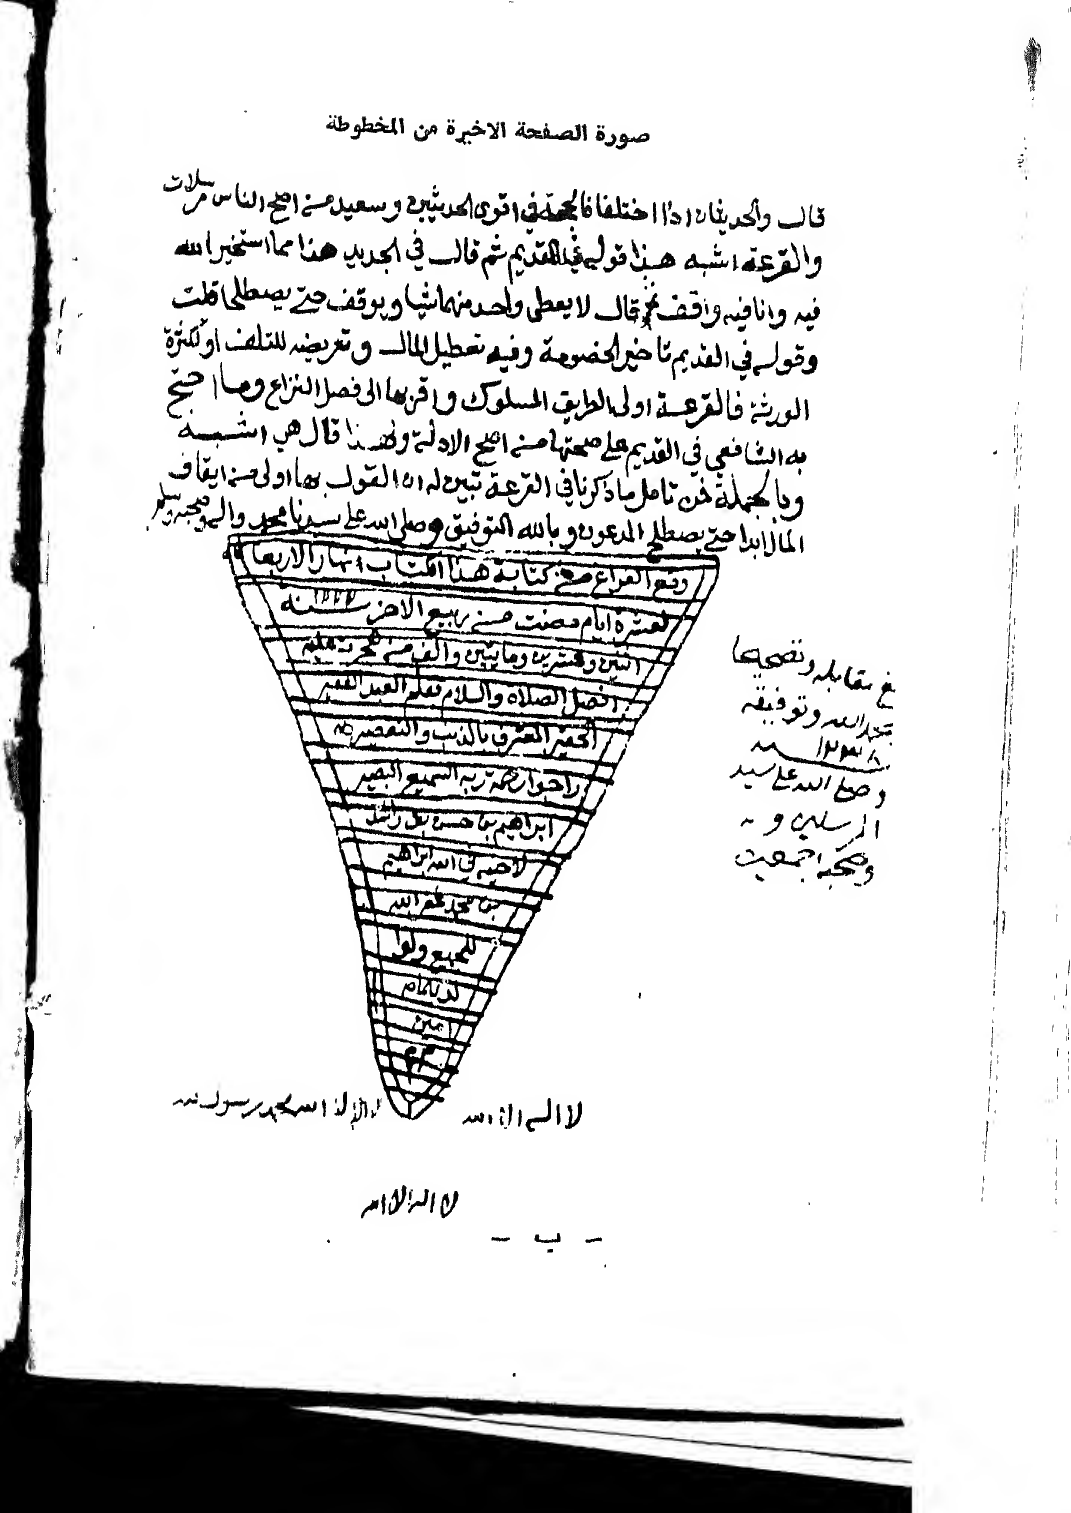 صورة الصفحة الاخيرة من المخطوطة
قال والحديثان اذا اختلفا فالحجة في اقوى الحديثين وسعيد من اصح الناس مرسلات
والقرعة اشبه هذا قوله في القديم ثم قال في الجديد هذا مما استخير الله
فيه وانا فيه واقف ثم قال لا يعطى واحد منهما شيا ويوقف حتى يصطلحا قلت
وقوله في القديم تاخير الخصومة وفيه تعطيل المال وتعريضه للتلف او لكثرة
الورثة فالقرعة اولى الطريق المسلوك واقربها الى فصل النزاع وما احتج
به الشافعي في القديم على صحتها من اصح الادلة ولهذا قال هي اشبه
وبالجملة فمن تامل ما ذكرنا في القرعة تبين له ان القول بها اولى من ايقاف
المال ابدا حتى يصطلح المدعون وبالله التوفيق وصلى الله على سيدنا محمد واله وصحبه وسلم
وقع الفراغ من كتابة هذا الكتاب نهار الاربعا
لعشرة ايام مضت من ربيع الاخر سنة
اثنين وعشرين ومايتين والف من هجرة
افضل الصلاة والسلام بقلم العبد الفقير
الحقير المعترف بالذنب والتقصير
راجو رحمة ربه السميع البصير
ابراهيم بن حسن بن راشد
لاخيه في الله ابراهيم
بن محمد غفر الله
للجميع
امين
لا اله الا الله
لا اله الا الله محمد رسول الله
لا اله الا الله
مقابلة وتصحيحا
بحمد الله وتوفيقه
١٢٣٨
وصلى الله على سيد
المرسلين و
وصحبه اجمعين
- ب -